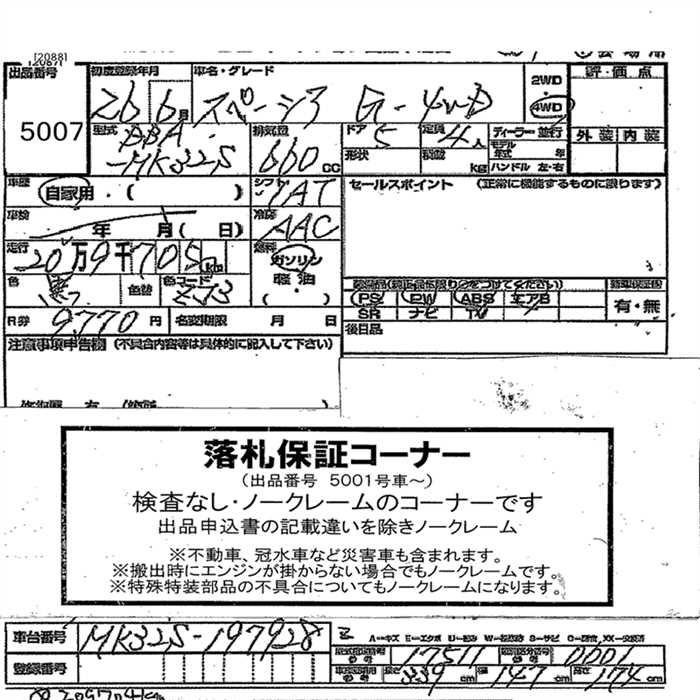 [2088]
出品番号 初度登録年月 車名・グレード 2WD 評・価 点
5007 26 6月 スペーシア G-4WD 4WD
型式 DBA-MK32S 排気量 660cc ドア 5 定員 4人 ディーラー・並行 外 装 内 装
形状 積載 kg モデル年式 年
ハンドル 左・右
車歴 自家用・( ) シフト IAT セールスポイント (正常に機能するものに限ります)
車検 年 月( 日) 冷房 AAC
走行 20万9千705km 燃料 ガソリン
軽油
色 黒 色替 色コード ZJ3
装備品(純正品に限り○をつけてください)
PS PW ABS エアB 有・無
SR ナビ TV
R券 9,770円 名変期限 月 日 後日品
注意事項申告欄 (不具合内容等は具体的に記入して下さい)
落札保証コーナー
(出品番号 5001号車～)
検査なし・ノークレームのコーナーです
出品申込書の記載違いを除きノークレーム
※不動車、冠水車など災害車も含まれます。
※搬出時にエンジンが掛からない場合でもノークレームです。
※特殊特装部品の不具合についてもノークレームになります。
車台番号 MK32S-197928
A=キズ E=エクボ U=凹み W=波消み S=サビ C=腐食 XX=交換済
17511 0001
登録番号 長さ 339cm 幅 147cm 高さ 174cm